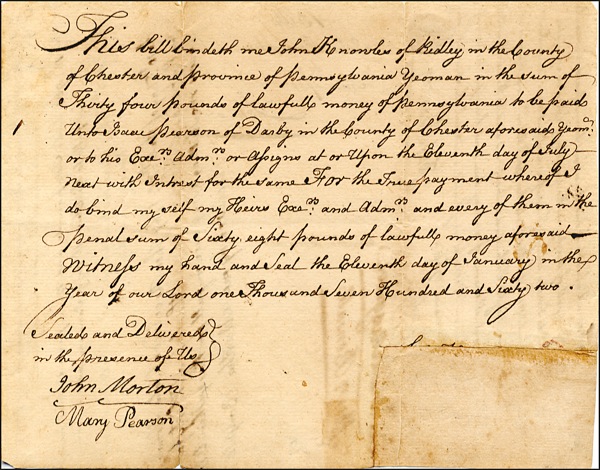 This bill bindeth me John Knowles of Ridley in the County
of Chester and province of Pennsylvania Yeoman in the sum of
Thirty four pounds of lawfull money of Pennsylvania to be paid
Unto Isaac Pearson of Darby in the County of Chester aforesaid Yeom:
or to his Exe:rs Adm:rs or Assigns at or Upon the Eleventh day of July
Next with Intrest for the same For the True payment whereof I
do bind my self my Heirs Exe:rs and Adm:rs and every of them in the
penal sum of Sixty eight pounds of lawfull money aforesaid
Witness my hand and Seal the Eleventh day of January in the
Year of our Lord one Thousand Seven Hundred and Sixty two.
Sealed and Delivered
in the presence of Us
John Morton
Mary Pearson